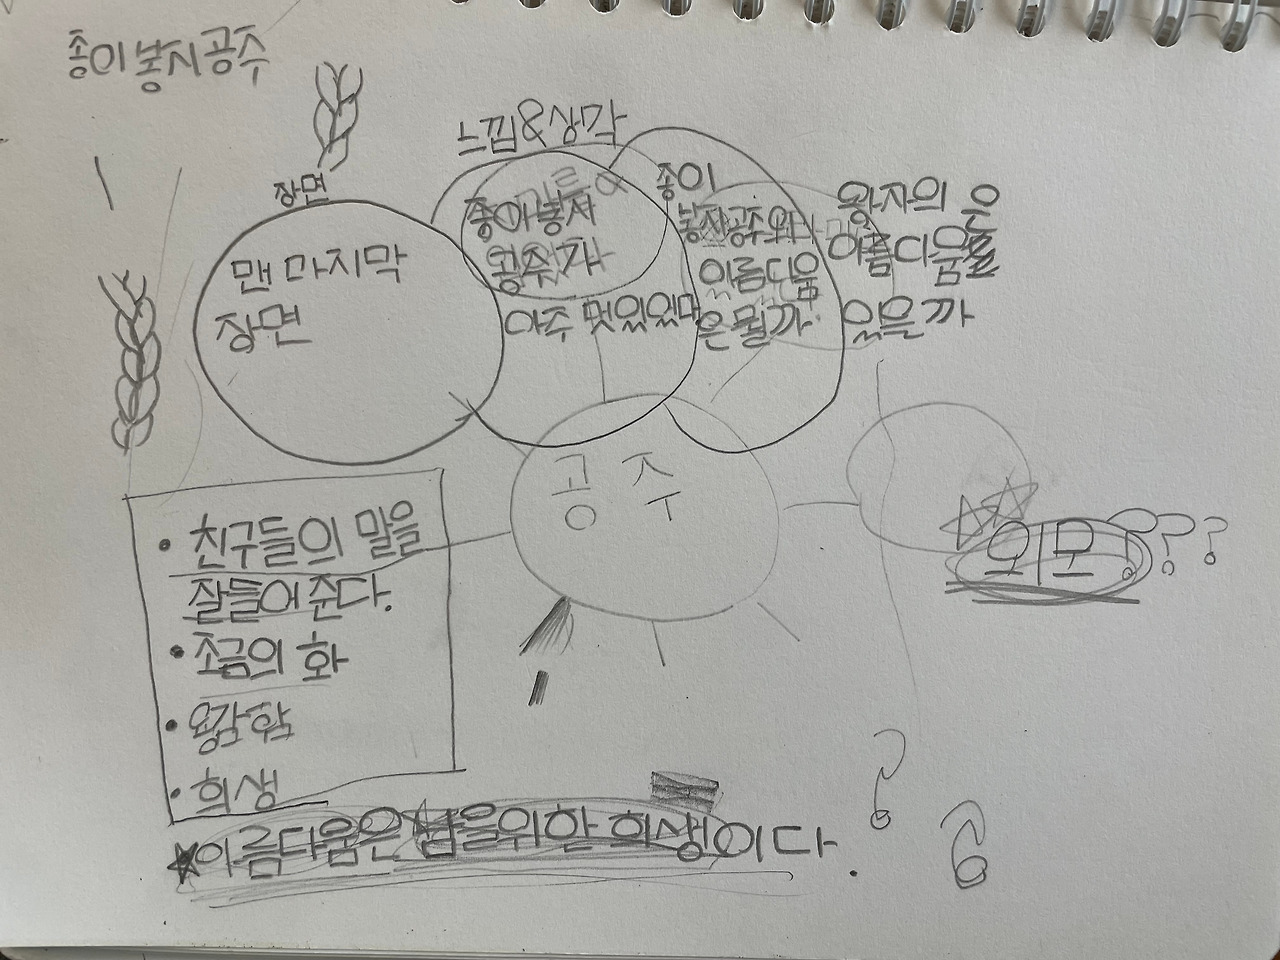 종이봏지공주
느낌&상각
장면
맨 마지막
장면
종이봏지
공주가
아주 멋있었다
종이
봏지공주와
아름다움
은 뭘까.
왕자의 은
아름다움을
있을까
공주
외모???
• 친구들의 말을
잘들어준다.
• 조금의 화
• 용감함
• 희생
★아름다움은 남을위한 희생이다.